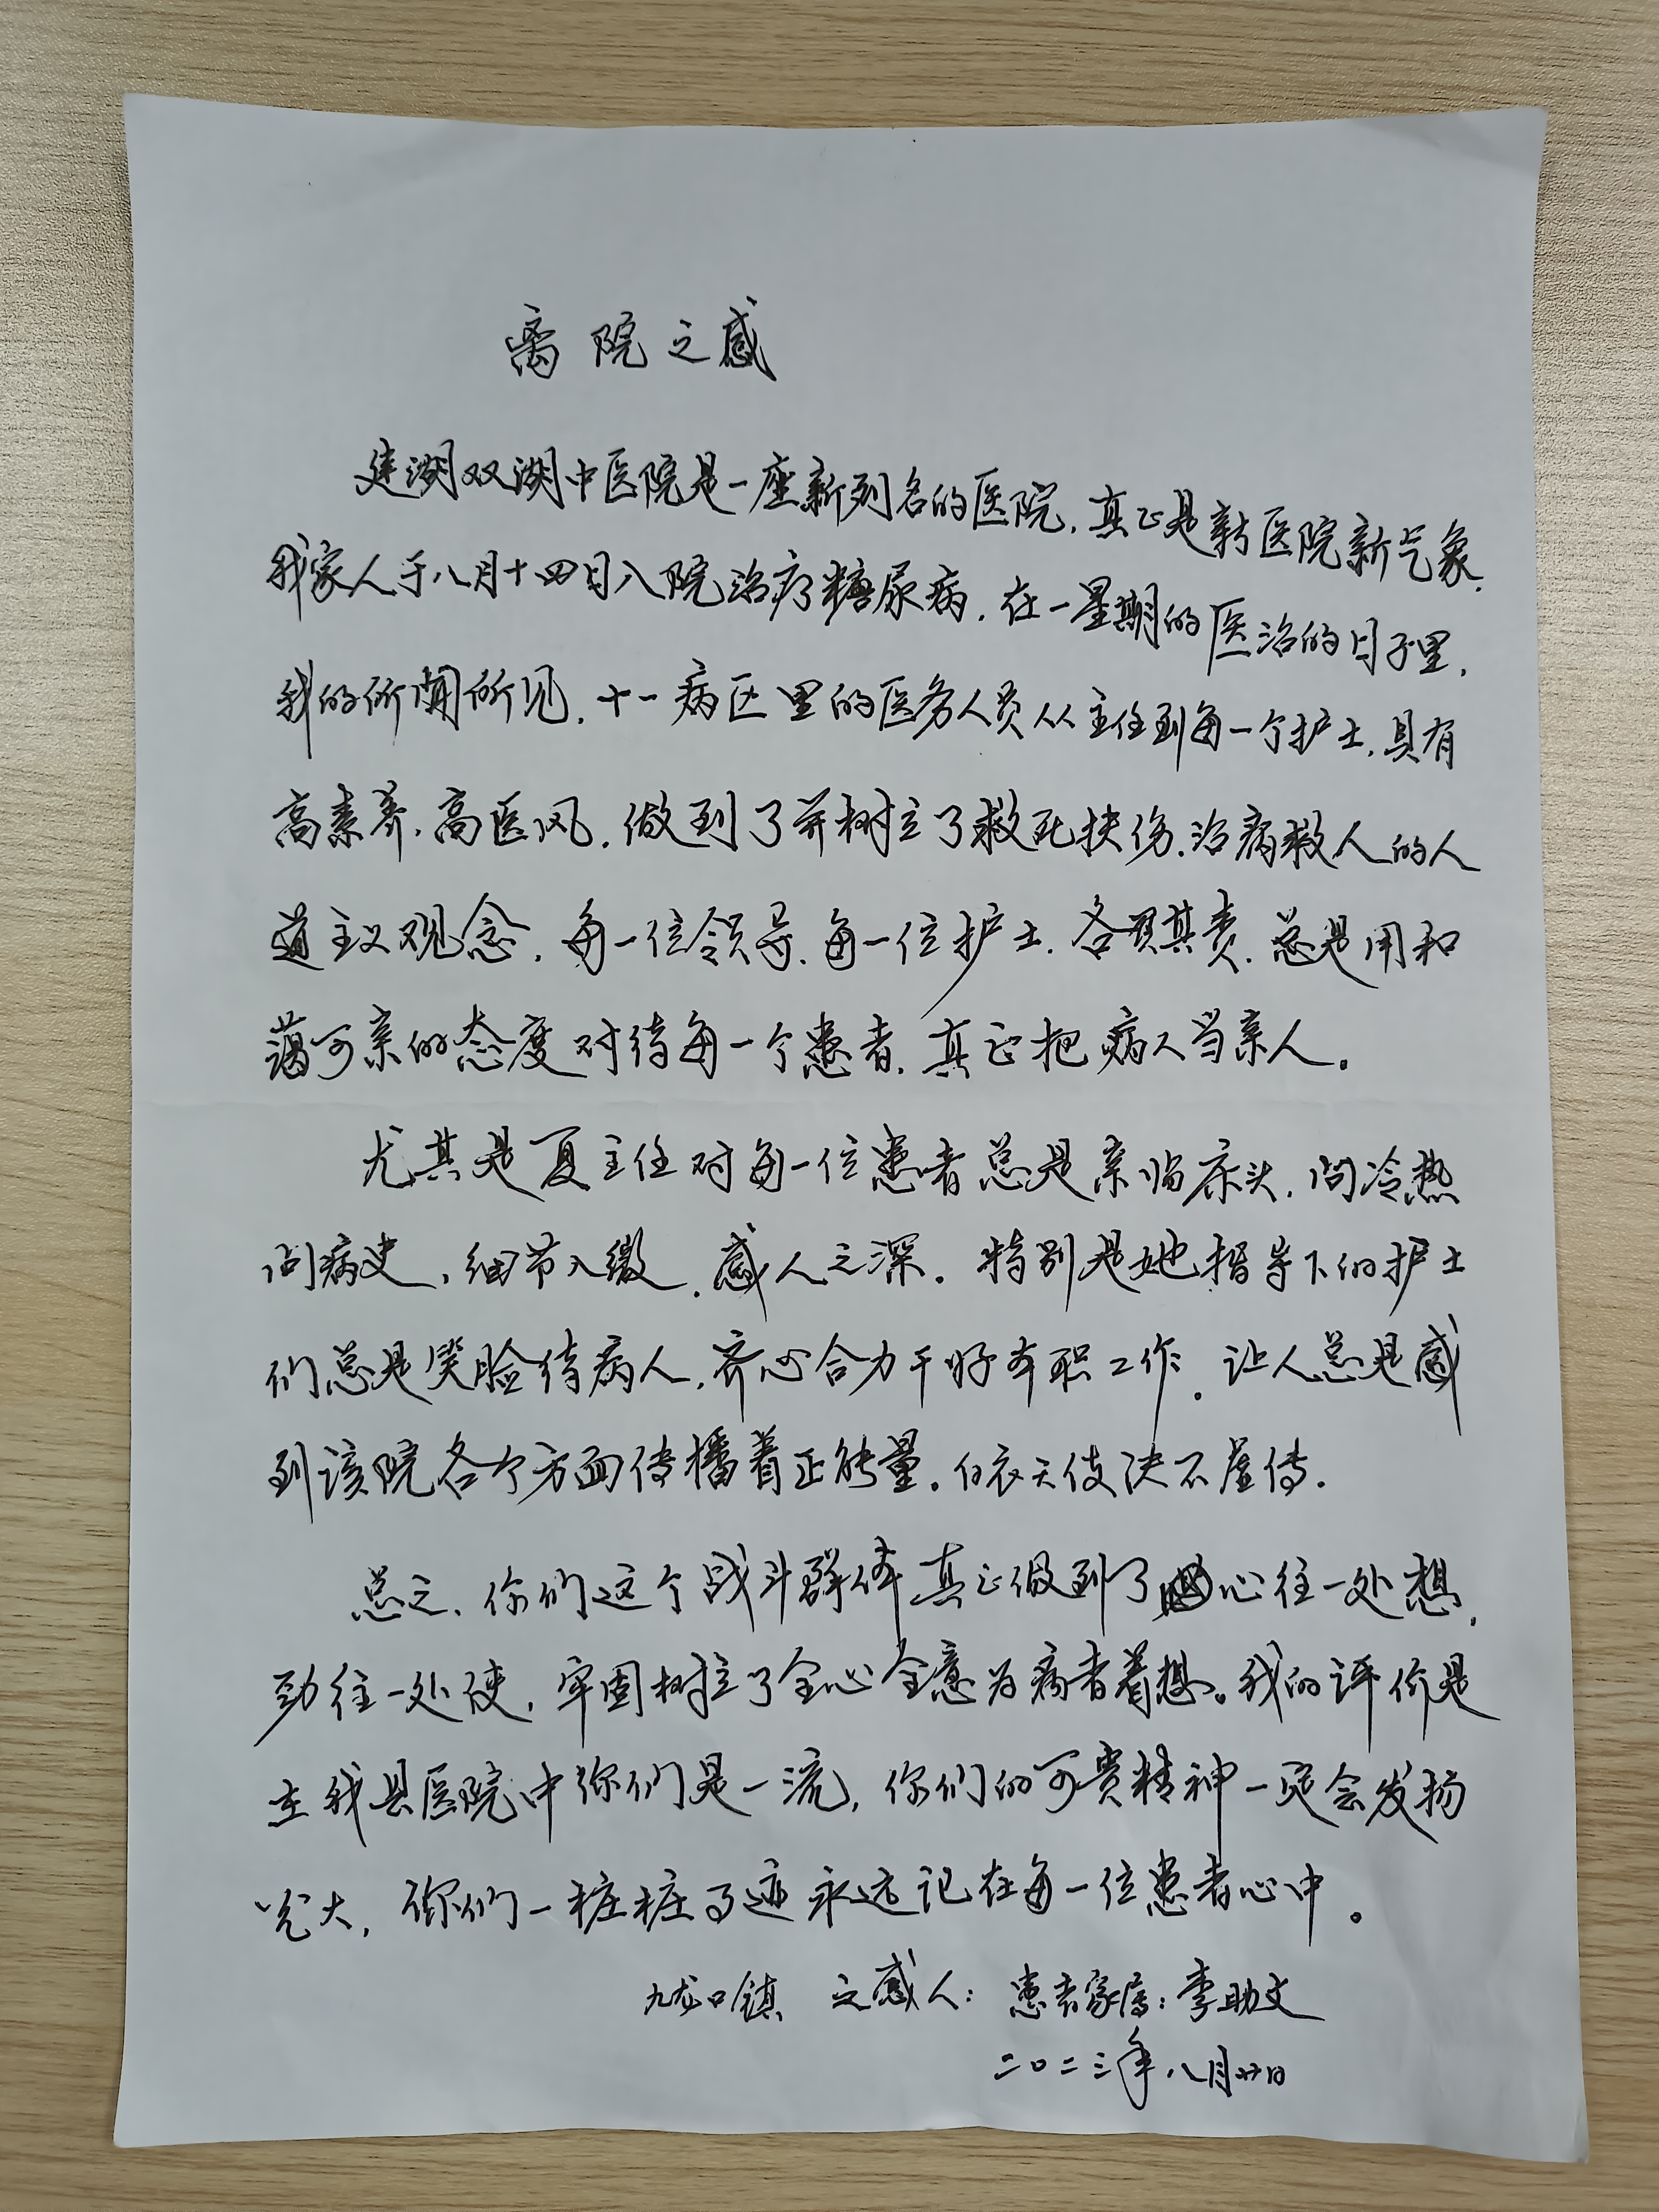 离院之感
建湖双湖中医院是一座新列名的医院,真正是新医院新气象.
我家人于八月十四日入院治疗糖尿病.在一星期的医治的日子里,
我的所闻所见,十一病区里的医务人员从主任到每一个护士,具有
高素养.高医风,做到了并树立了救死扶伤.治病救人的人
道主义观念.每一位领导.每一位护士.各负其责.总是用和
蔼可亲的态度对待每一个患者,真正把病人当亲人。
尤其是夏主任对每一位患者总是亲临床头,问冷热
问病史,细节入微,感人之深。特别是她指导下的护士
们总是笑脸待病人,齐心合力干好本职工作,让人总是感
到该院各个方面传播着正能量。白衣天使决不虚传.
总之,你们这个战斗群体真正做到了心往一处想,
劲往一处使,牢固树立了全心全意为病者着想。我的评价是
在我县医院中你们是一流,你们的可贵精神一定会发扬
光大,你们一桩桩事迹永远记在每一位患者心中。
九龙口镇 之感人:患者家属:李助文
二〇二三年八月廿日